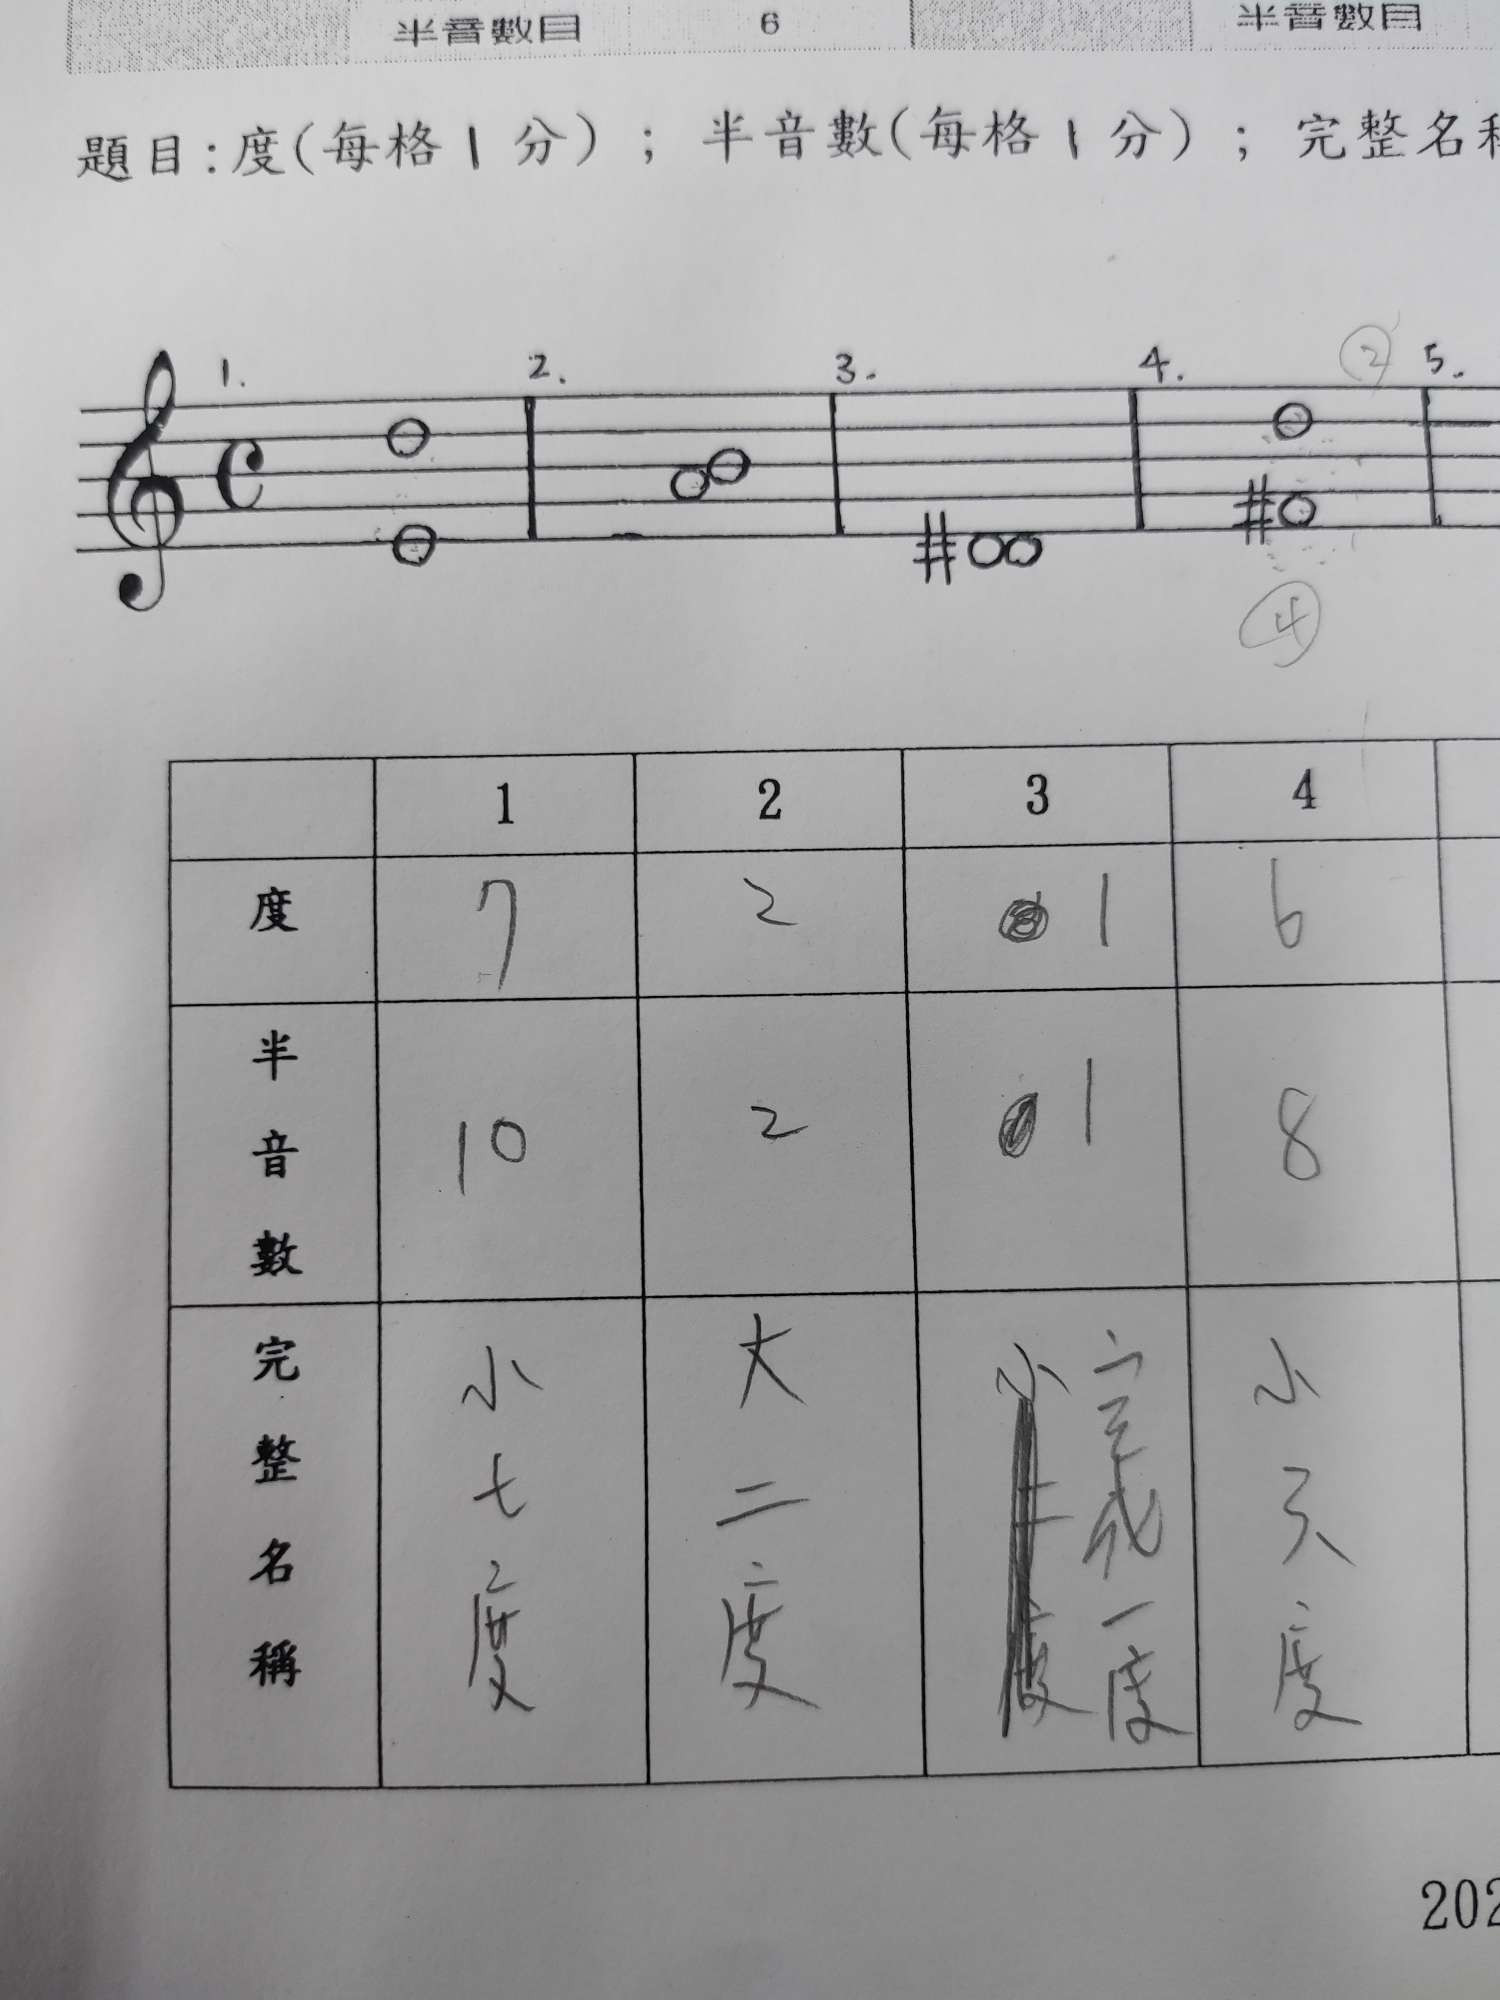 半音數目 6 半音數目
題目:度(每格1分) ; 半音數(每格1分) ; 完整名稱
1. 2. 3. 4. ② 5.
④
1 2 3 4
度 7 2 1 6
半音數 10 2 1 8
完整名稱 小七度 大二度 一度 小六度
202